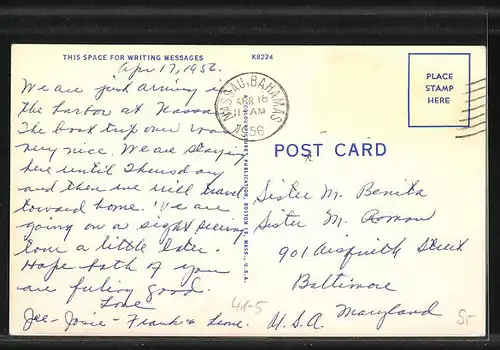 THIS SPACE FOR WRITING MESSAGES
K8224
Apr 17, 1956.
We are just arriving in
the harbor at Nassau
The boat trip over was
very nice. We are staying
here until Thursday
and then we will travel
toward home. We are
going on a sight seeing
tour a little later.
Hope both of you
are feeling good.
Love
Josie - Frank &
NASSAU, BAHAMAS
APR 16
AM
1956
PLACE
STAMP
HERE
POST CARD
Sister M. Benita
Sister M.
901 Aisquith Street
Baltimore
Maryland
U.S.A
41-5
5-